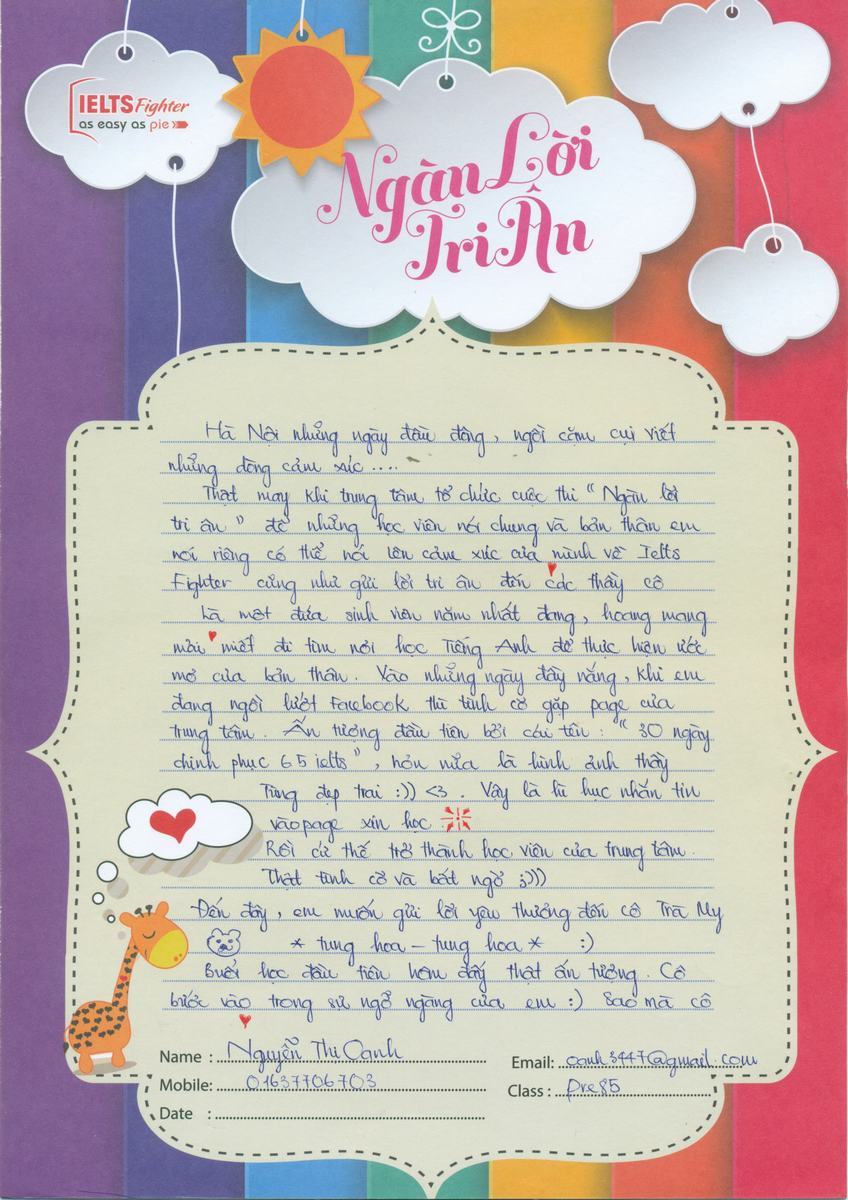 IELTS Fighter
as easy as pie
Ngàn Lời
Tri Ân
Hà Nội những ngày đầu đông, ngồi cặm cụi viết
những dòng cảm xúc ....
Thật may khi trung tâm tổ chức cuộc thi " Ngàn lời
tri ân " để những học viên nói chung và bản thân em
nói riêng có thể nói lên cảm xúc của mình về Ielts
Fighter cũng như gửi lời tri ân đến các thầy cô
Là một đứa sinh viên năm nhất đang, hoang mang
mải miết đi tìm nơi học Tiếng Anh để thực hiện ước
mơ của bản thân. Vào những ngày đầy nắng, khi em
đang ngồi lướt Facebook thì tình cờ gặp page của
trung tâm. Ấn tượng đầu tiên bởi cái tên : " 30 ngày
chinh phục 6 5 ielts ", hơn nữa là hình ảnh thầy
Tùng đẹp trai :)) <3 . Vậy là hì hục nhắn tin
vào page xin học
Rồi cứ thế trở thành học viên của trung tâm.
Thật tình cờ và bất ngờ ;)))
Đến đây, em muốn gửi lời yêu thương đến cô Trà My
* tung hoa - tung hoa * :)
Buổi học đầu tiên hôm đấy thật ấn tượng. Cô
bước vào trong sự ngỡ ngàng của em :) Sao mà cô
Name : Nguyễn Thị Oanh Email: oanh3447@gmail.com
Mobile: 01637706703 Class : Pre85
Date :